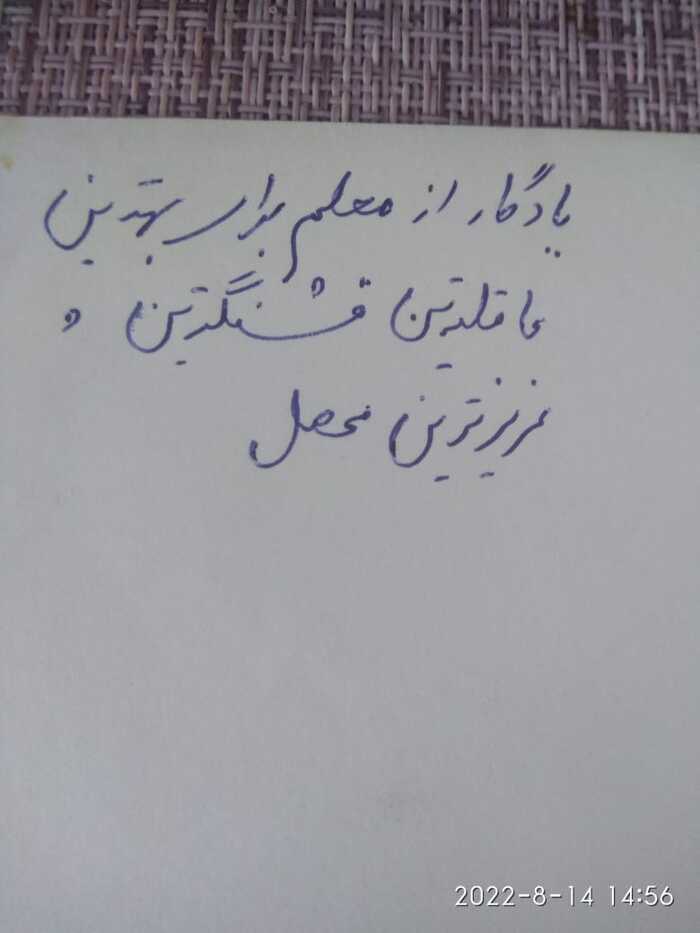 یادگار از معلم برای بهترین
عاقلترین قشنگترین و
عزیزترین محصل
2022-8-14 14:56